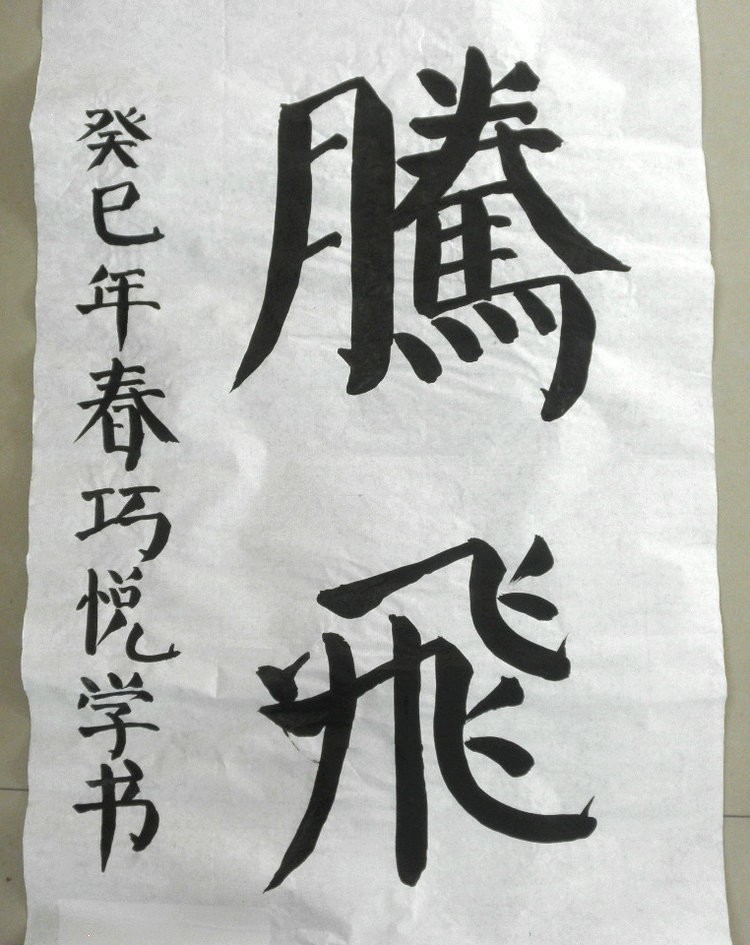 騰飛
癸巳年春巧悦学书